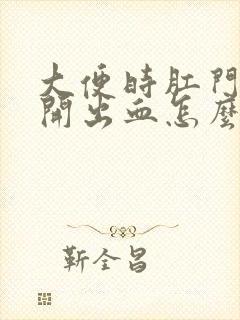 大便時肛門
開出血怎麼
靳全昌